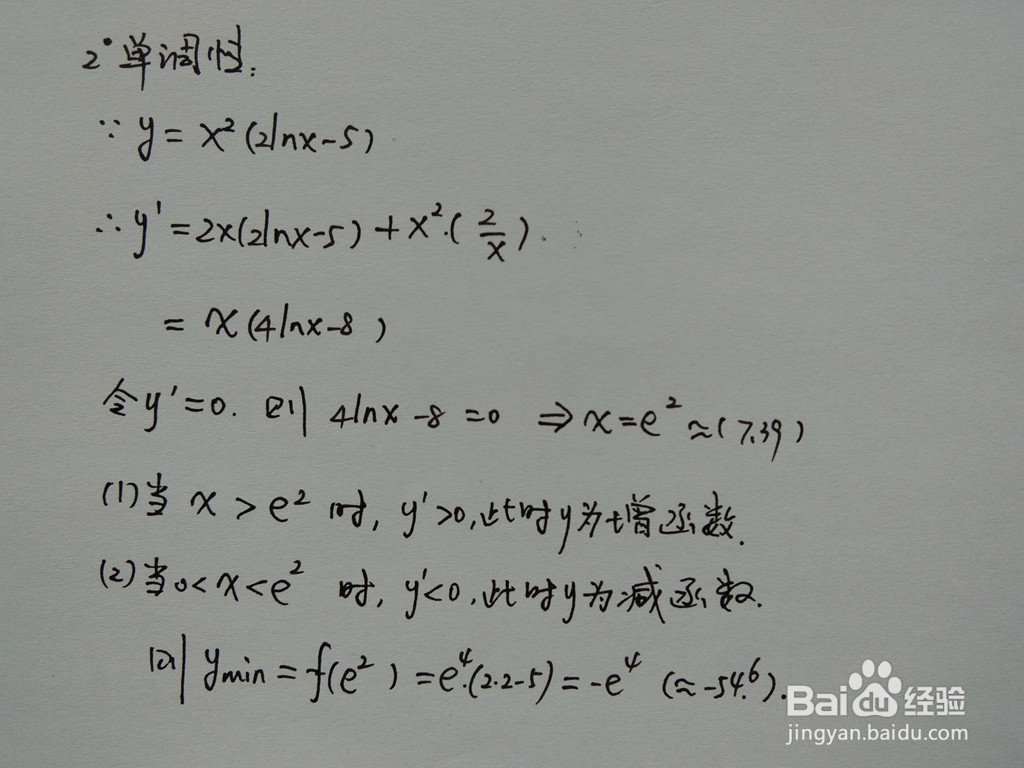 2° 单调性:
∵ y = x²(2lnx-5)
∴ y' = 2x(2lnx-5) + x²·(2/x).
= x(4lnx-8)
令y'=0. 则 4lnx-8=0 ⇒ x=e² ≈(7.39)
(1)当 x > e² 时, y'>0, 此时y为增函数.
(2)当0<x<e² 时, y'<0, 此时y为减函数.
则 ymin = f(e²) = e⁴·(2·2-5) = -e⁴ (≈-54.6).
Baidu经验
jingyan.baidu.com